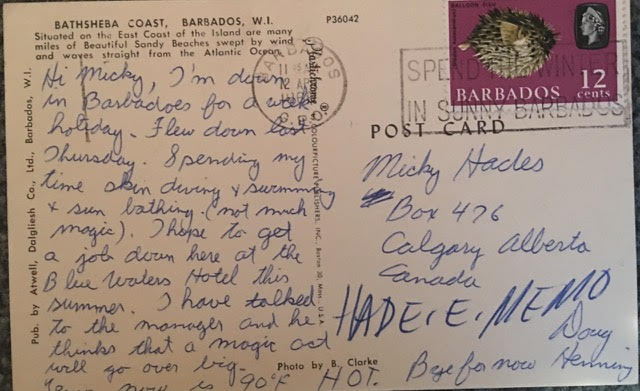 BATHSHEBA COAST, BARBADOS, W.I.
Situated on the East Coast of the Island are many
miles of Beautiful Sandy Beaches swept by wind
and waves straight from the Atlantic Ocean.
P36042
Hi Micky, I'm down
in Barbadoes for a week
holiday. Flew down last
Thursday. Spending my
time skin diving & swimming
& sun bathing (not much
magic). I hope to get
a job down here at the
Blue Waters Hotel this
summer. I have talked
to the manager and he
thinks that a magic act
will go over big.
now is 90°F HOT.
Bye for now
Doug
Henning
Pub. by Atwell, Dalgliesh Co., Ltd., Barbados, W.I.
Plastichrome ®
COLOURPICTURE PUBLISHERS, INC., BOSTON 30, MASS., U.S.A.
Photo by B. Clarke
BARBADOS
11
12 AP
G.P.O.
SPEND THE WINTER
IN SUNNY BARBADOS
BALLOON FISH
BARBADOS
12
cents
POST CARD
Micky Hades
Box 476
Calgary Alberta
Canada
HADE.E.MEMO